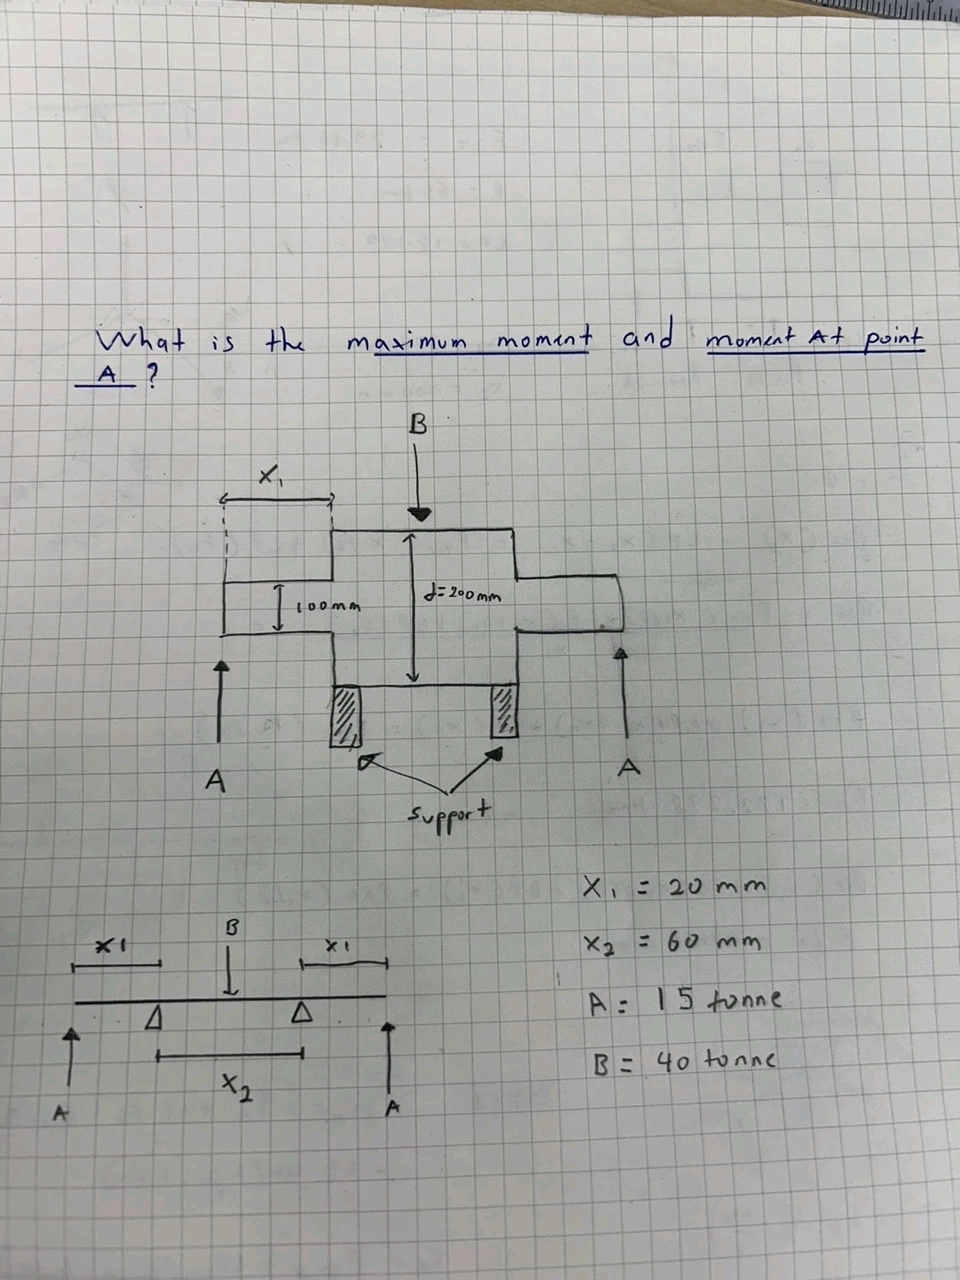 What is the maximum moment and moment At point
A ?
B
X₁
d=200mm
100mm
A
A
support
X₁ = 20 mm
B
x1
x1
x₂ = 60 mm
A = 15 tonne
B = 40 tonne
X₂
A
A